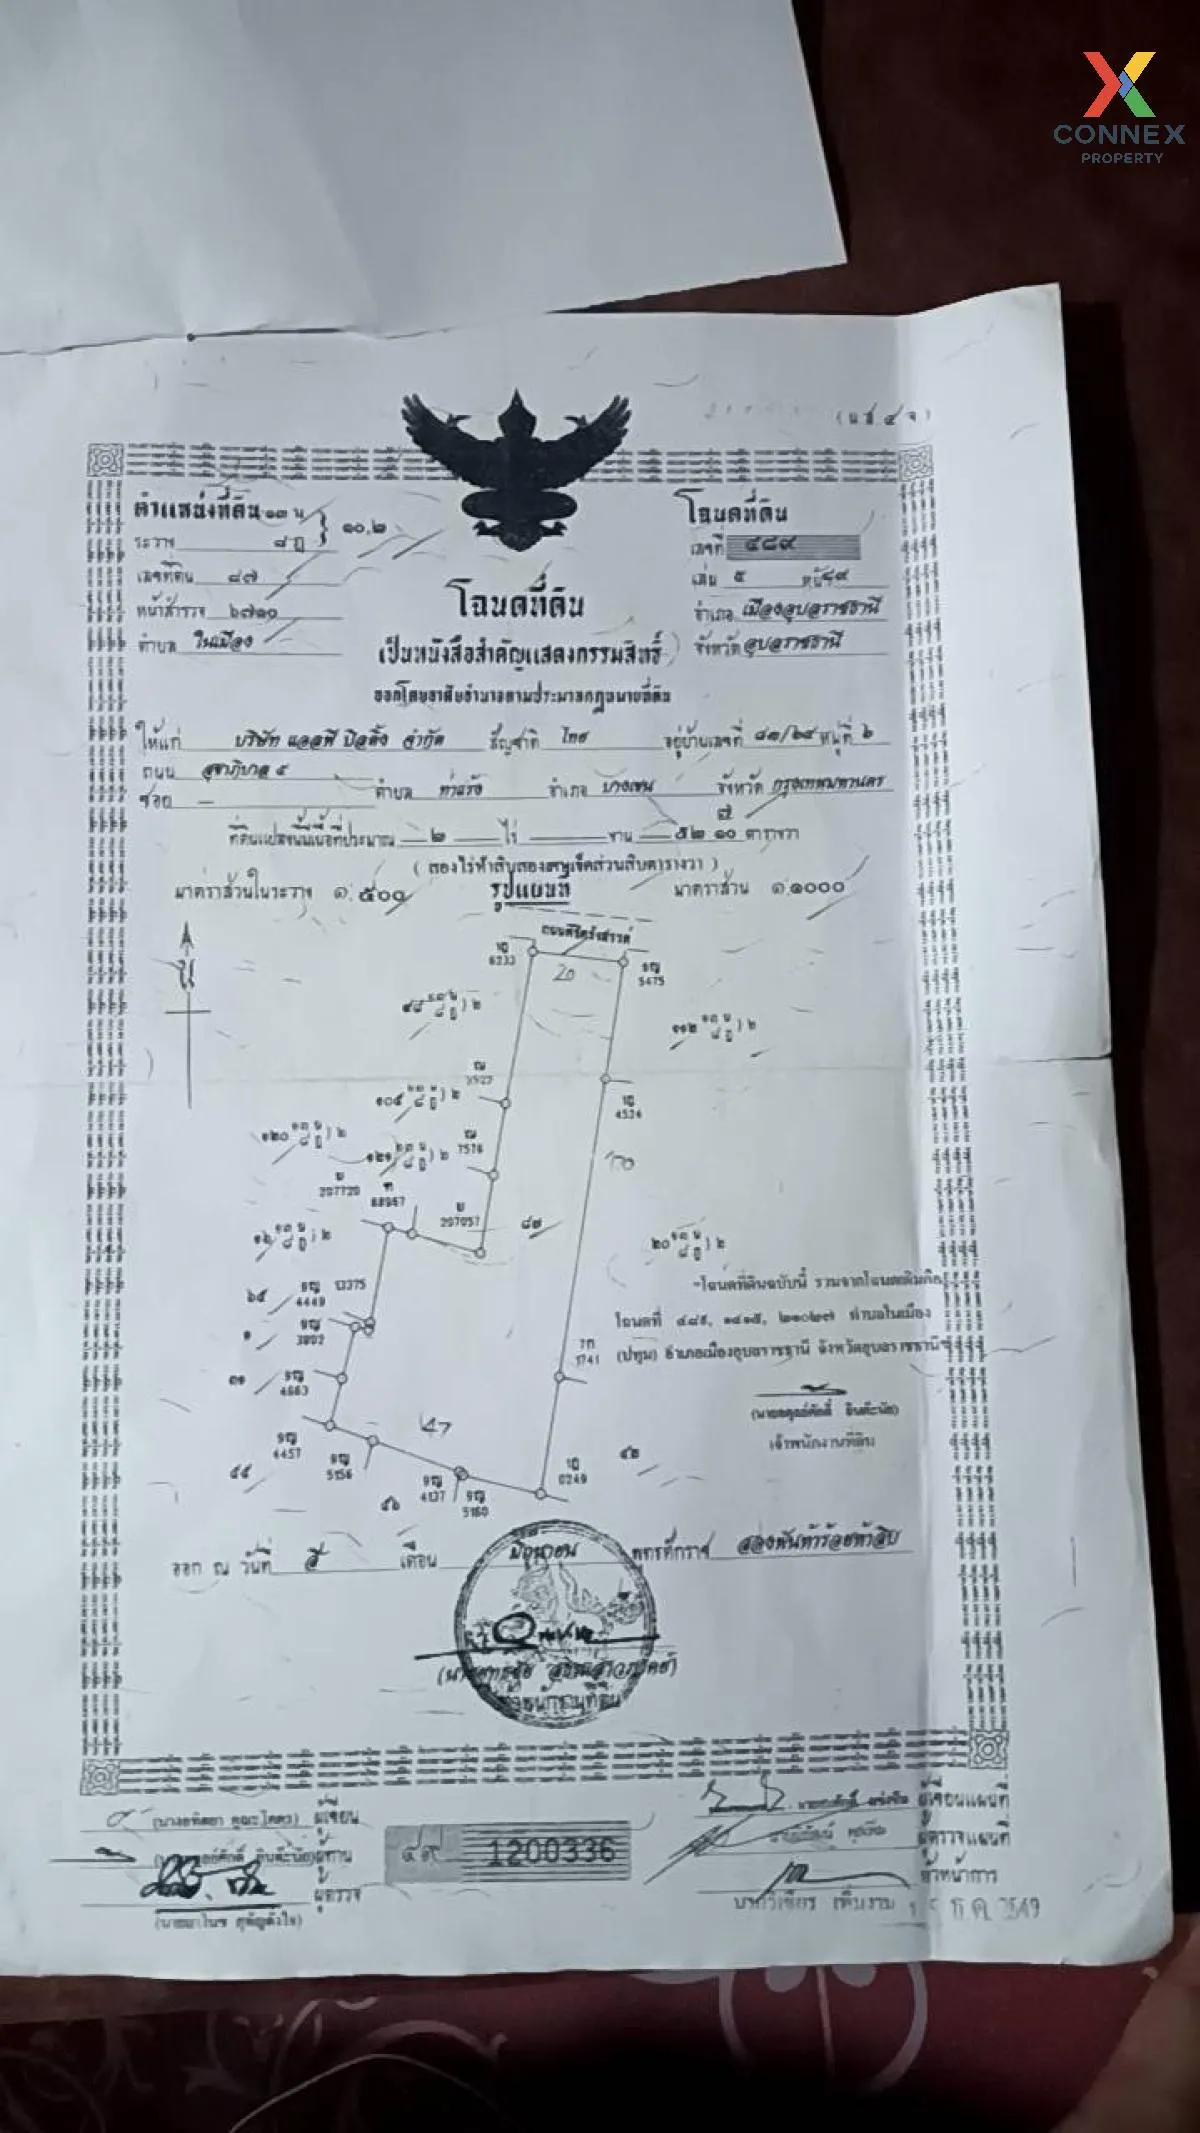 CONNEX
PROPERTY
(น.ส.๔ จ)
ตำแหน่งที่ดิน ๑๓ น
ระวาง ๘ ฎ ๑๐,๒
เลขที่ดิน ๘๗
หน้าสำรวจ ๖๗๑๐
ตำบล ในเมือง
โฉนดที่ดิน
เลขที่ ๔๘๙
เล่ม ๕ หน้า ๘๙
อำเภอ เมืองอุบลราชธานี
จังหวัด อุบลราชธานี
โฉนดที่ดิน
เป็นหนังสือสำคัญแสดงกรรมสิทธิ์
ออกโดยอาศัยอำนาจตามประมวลกฎหมายที่ดิน
ให้แก่ บริษัท แอลพี บิลดิ้ง จำกัด สัญชาติ ไทย อยู่บ้านเลขที่ ๘๑/๖๔ หมู่ที่ ๖
ถนน สุขาภิบาล ๕
ซอย — ตำบล ท่าแร้ง อำเภอ บางเขน จังหวัด กรุงเทพมหานคร
ที่ดินแปลงนี้มีเนื้อที่ประมาณ ๒ ไร่ — งาน — ๕๒ ๗/๑๐ ตารางวา
(สองไร่ห้าสิบสองเศษเจ็ดส่วนสิบตารางวา)
มาตราส่วนในระวาง ๑:๕๐๐ รูปแผนที่ มาตราส่วน ๑:๑๐๐๐
น
20
6233
5475
๔๘ ๑๓ น ๘ ฎ ) ๒
๑๑๒ ๑๓ น ๘ ฎ ) ๒
๑๐๕ ๑๓ น ๘ ฎ ) ๒
4524
๑๒๐ ๑๓ น ๘ ฎ ) ๒
๑๒๑ ๑๓ น ๘ ฎ ) ๒
7576
207720
68967
207057
๘๗
๑๖ ๑๓ น ๘ ฎ ) ๒
๒๐ ๑๓ น ๘ ฎ ) ๒
โฉนดที่ดินฉบับนี้ รวมจากโฉนดเดิมคือ
โฉนดที่ ๔๘๙, ๑๔๑๕, ๒๑๐๒๗ ตำบลในเมือง
(ปทุม) อำเภอเมืองอุบลราชธานี จังหวัดอุบลราชธานี
๖๕ 4449 13375
๑ 3892
1741
๓๑ 4663
เจ้าพนักงานที่ดิน
4457
5156
47
๕๕
๕๖
4137
5160
0249
๕๒
ออก ณ วันที่ ๕ เดือน มิถุนายน พุทธศักราช สองพันห้าร้อยห้าสิบ
เจ้าพนักงานที่ดิน
ผู้เขียน
ผู้ทาน
ผู้ตรวจ
๔๙ 1200336
ผู้เขียนแผนที่
ผู้ตรวจแผนที่
หัวหน้าการ
ธ.ค. 2549